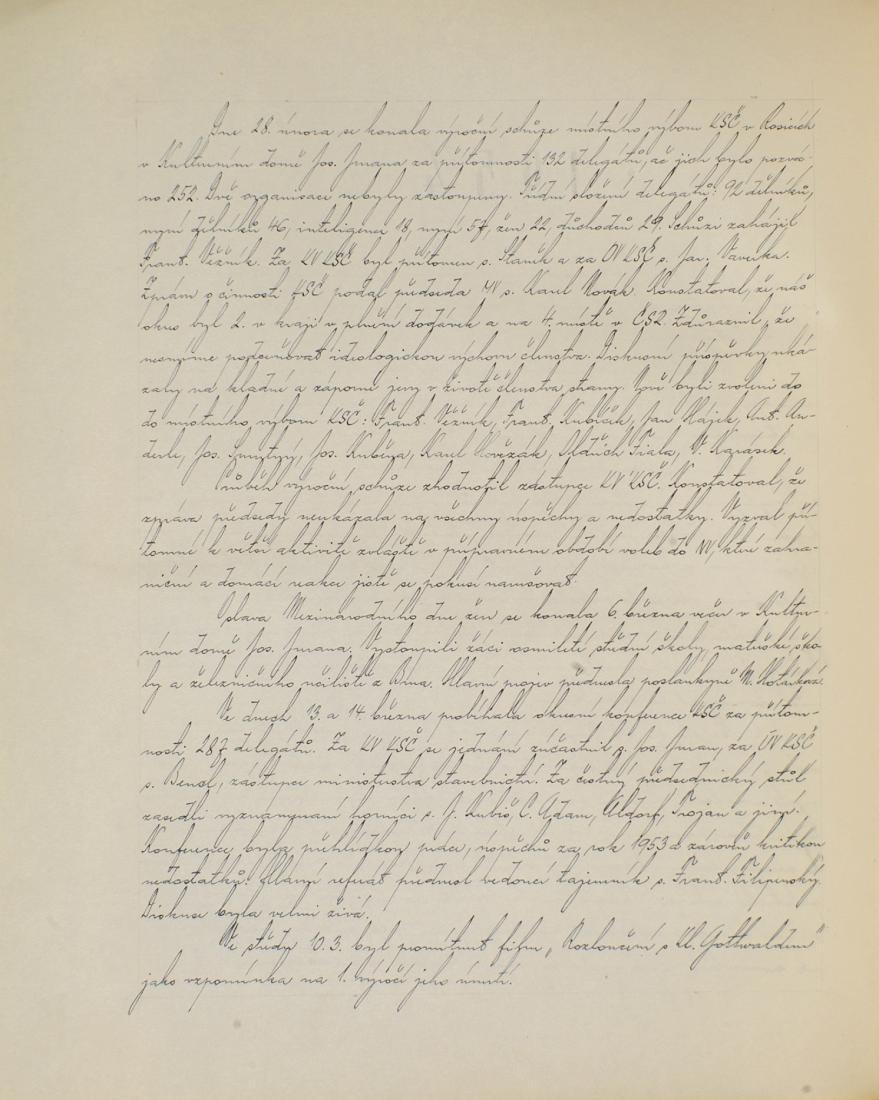 Dne 28. února se konala výroční schůze místního výboru KSČ v Rosicích
v Kulturním domě Jos. Jurana za přítomnosti 132 delegátů, ač jich bylo pozvá-
no 252. Dvě organisace nebyly zastoupeny. Třídní složení delegátů: 92 dělníků,
nyní dělníků 46, inteligence 18, nyní 57, žen 22, důchodců 29. Schůzi zahájil
Frant. Vězník. Za KV KSČ byl přítomen s. Staněk a za OV KSČ s. Jar. Vaverka.
Zprávu o činnosti KSČ podal předseda MV s. Karel Novák. Konstatoval, že náš
okres byl 2. v kraji v plnění dodávek a na 4. místě v ČSR. Zdůraznil, že
nesmíme podceňovat ideologickou výchovu členstva. Diskusní příspěvky uká-
zaly na kladné a záporné jevy v životě členstva strany. Nově byli zvoleni do
do místního výboru KSČ: Frant. Vězník, Frant. Kubíček, Jan Hájek, Ant. An-
derle, Jos. Smutný, Jos. Kubéna, Karel Hovězák, Oldřich Fiala, V. Karásek.
Průběh výroční schůze zhodnotil zástupce KV KSČ. Konstatoval, že
zpráva předsedy neukázala na všechny úspěchy a nedostatky. Vyzval pří-
tomné k větší aktivitě zvláště v přípravném období voleb do NV, které zahra-
niční a domácí reakce jistě se pokusí narušovat.
Oslava Mezinárodního dne žen se konala 6. března večer v Kultur-
ním domě Jos. Jurana. Vystoupili žáci osmileté střední školy, mateřské ško-
ly a železničního učiliště z Brna. Hlavní projev přednesla poslankyně M.
Ve dnech 13. a 14. března probíhala okresní konference KSČ za přítom-
nosti 287 delegátů. Za KV KSČ se jednání zúčastnil s. Jos. Juran, za ÚV KSČ
s. Bencl, zástupce ministerstva stavebnictví. Za čestný předsednický stůl
zasedli vyznamenaní horníci s. J. Kubiš, C. Adam, Aldorf, Trojan a jiní.
Konference byla přehlídkou práce, úspěchů za rok 1953 a zároveň kritikou
nedostatků. Hlavní referát přednesl vedoucí tajemník s. Frant. Filipenský.
Diskuse byla velmi živá.
Ve středu 10. 3. byl promítnut film „Rozloučení s Kl. Gottwaldem"
jako vzpomínka na 1. výročí jeho úmrtí.